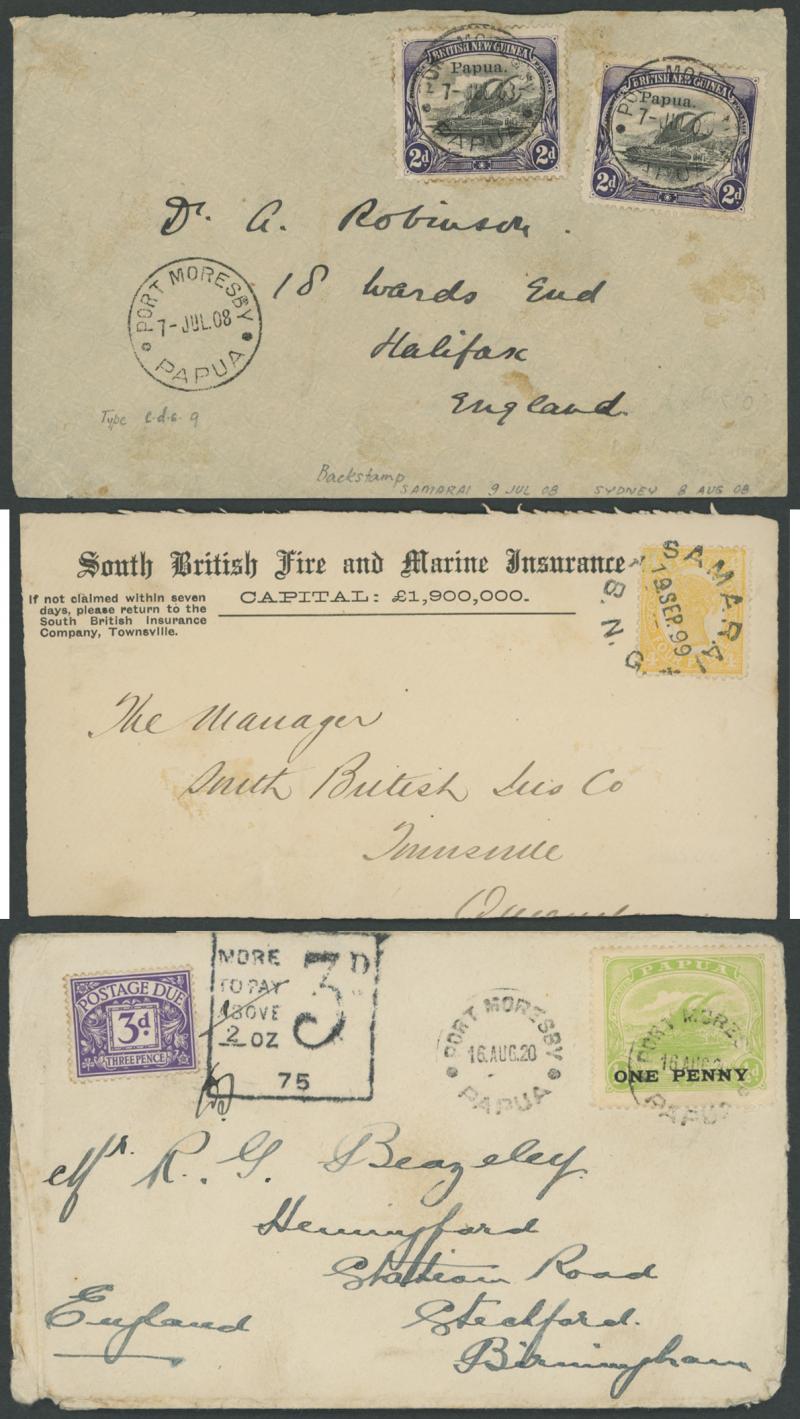 PORT MORESBY
7-JUL.08
PAPUA
BRITISH NEW GUINEA
POSTAGE
Papua.
2d 2d
PORT MORESBY
7-JUL.08
PAPUA
BRITISH NEW GUINEA
POSTAGE
Papua.
2d 2d
Dr. A. Robinson.
18 Wards End
Halifax
England.
PORT MORESBY
7-JUL.08
PAPUA
Type c.d.s. 9
Backstamp SAMARAI 9 JUL 08 SYDNEY 8 AUG 08
South British Fire and Marine Insurance
CAPITAL: £1,900,000.
If not claimed within seven
days, please return to the
South British Insurance
Company, Townsville.
SAMARAI
19.SEP.99
B.N.G.
The Manager
South British Ins Co
Townsville
POSTAGE DUE
3d.
THREE PENCE
MORE
TO PAY
ABOVE
2 OZ
3D
75
PORT MORESBY
16.AUG.20
PAPUA
PAPUA
ONE PENNY
PORT MORES
16.AUG.2
PAPUA
Mr. R. G. Beazeley.
Hemingford
Station Road
Stechford.
Birmingham
England